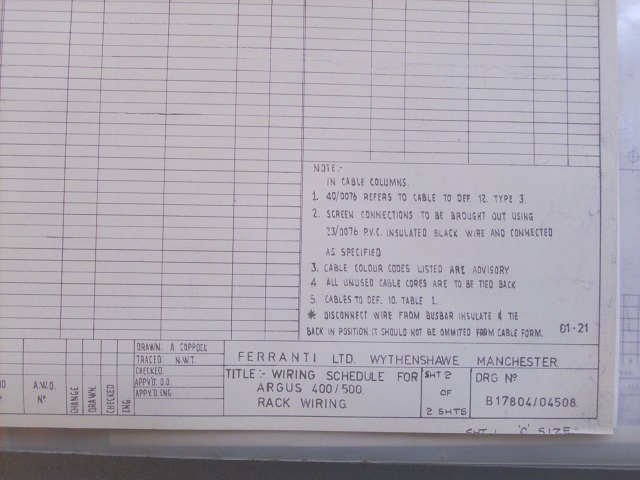 NOTE:-
IN CABLE COLUMNS.
1. 40/0076 REFERS TO CABLE TO DEF. 12. TYPE 3.
2. SCREEN CONNECTIONS TO BE BROUGHT OUT USING
23/0076 P.V.C. INSULATED BLACK WIRE AND CONNECTED
AS SPECIFIED
3. CABLE COLOUR CODES LISTED ARE ADVISORY
4 ALL UNUSED CABLE CORES ARE TO BE TIED BACK
5. CABLES TO DEF. 10. TABLE 1.
* DISCONNECT WIRE FROM BUSBAR INSULATE & TIE
BACK IN POSITION IT SHOULD NOT BE OMMITED FROM CABLE FORM.
01-21
DRAWN: A COPPOCK
TRACED: N.W.T.
CHECKED
APPV'D. D.O.
APPV'D. ENG.
A.W.O. Nº
CHANGE
DRAWN.
CHECKED
ENG
FERRANTI LTD. WYTHENSHAWE MANCHESTER.
TITLE:- WIRING SCHEDULE FOR
ARGUS 400/500
RACK WIRING
SHT 2
OF
2 SHTS
DRG Nº
B17804/04508.
SHT 1 'C' SIZE